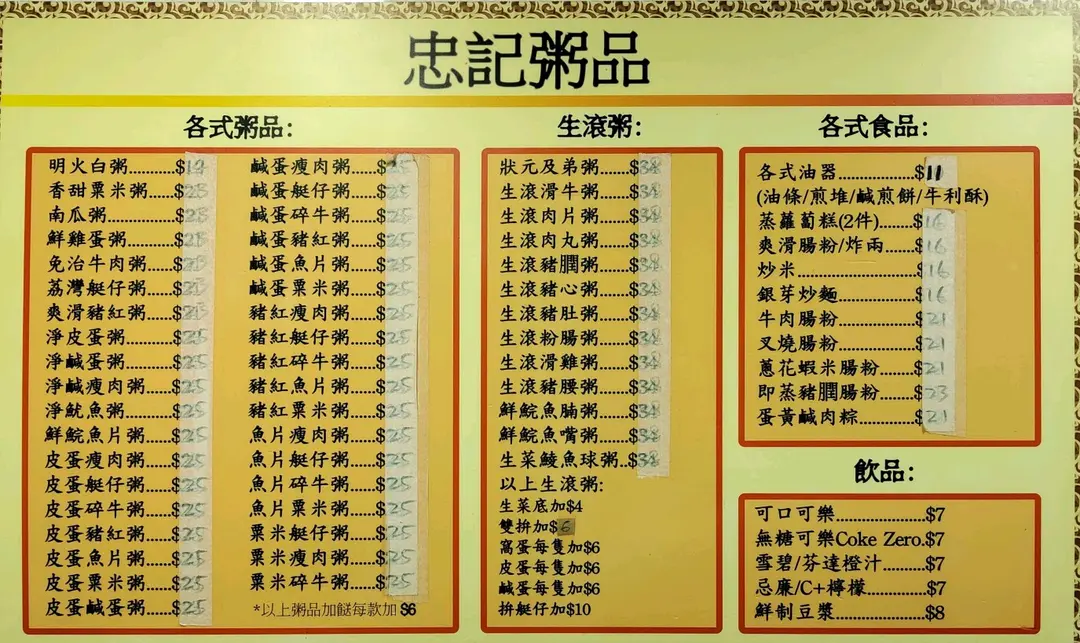 忠記粥品
各式粥品:
明火白粥..........$
香甜粟米粥.....$23
南瓜粥............$23
鮮雞蛋粥........$23
免治牛肉粥.....$23
荔灣艇仔粥.....$23
爽滑豬紅粥.....$23
淨皮蛋粥........$25
淨鹹蛋粥........$25
淨鹹瘦肉粥.....$25
淨魷魚粥........$25
鮮鯇魚片粥.....$25
皮蛋瘦肉粥.....$25
皮蛋艇仔粥.....$25
皮蛋碎牛粥.....$25
皮蛋豬紅粥.....$25
皮蛋魚片粥.....$25
皮蛋粟米粥.....$25
皮蛋鹹蛋粥.....$25
鹹蛋瘦肉粥.....$25
鹹蛋艇仔粥.....$25
鹹蛋碎牛粥.....$25
鹹蛋豬紅粥.....$25
鹹蛋魚片粥.....$25
鹹蛋粟米粥.....$25
豬紅瘦肉粥.....$25
豬紅艇仔粥.....$25
豬紅碎牛粥.....$25
豬紅魚片粥.....$25
豬紅粟米粥.....$25
魚片瘦肉粥.....$25
魚片艇仔粥.....$25
魚片碎牛粥.....$25
魚片粟米粥.....$25
粟米艇仔粥.....$25
粟米瘦肉粥.....$25
粟米碎牛粥.....$25
*以上粥品加餸每款加 $6
生滾粥:
狀元及弟粥.....$38
生滾滑牛粥.....$38
生滾肉片粥.....$38
生滾肉丸粥.....$38
生滾豬膶粥.....$38
生滾豬心粥.....$38
生滾豬肚粥.....$38
生滾粉腸粥.....$38
生滾滑雞粥.....$38
生滾豬腰粥.....$38
鮮鯇魚腩粥.....$38
鮮鯇魚嘴粥.....$38
生菜鯪魚球粥..$38
以上生滾粥:
生菜底加$4
雙拚加$6
窩蛋每隻加$6
皮蛋每隻加$6
鹹蛋每隻加$6
拚艇仔加$10
各式食品:
各式油器..............$11
(油條/煎堆/鹹煎餅/牛利酥)
蒸蘿蔔糕(2件).......$16
爽滑腸粉/炸兩......$16
炒米.....................$16
銀芽炒麵..............$16
牛肉腸粉..............$21
叉燒腸粉..............$21
蔥花蝦米腸粉.......$21
即蒸豬膶腸粉.......$23
蛋黃鹹肉粽..........$21
飲品:
可口可樂................$7
無糖可樂Coke Zero.$7
雪碧/芬達橙汁........$7
忌廉/C+檸檬...........$7
鮮制豆漿................$8